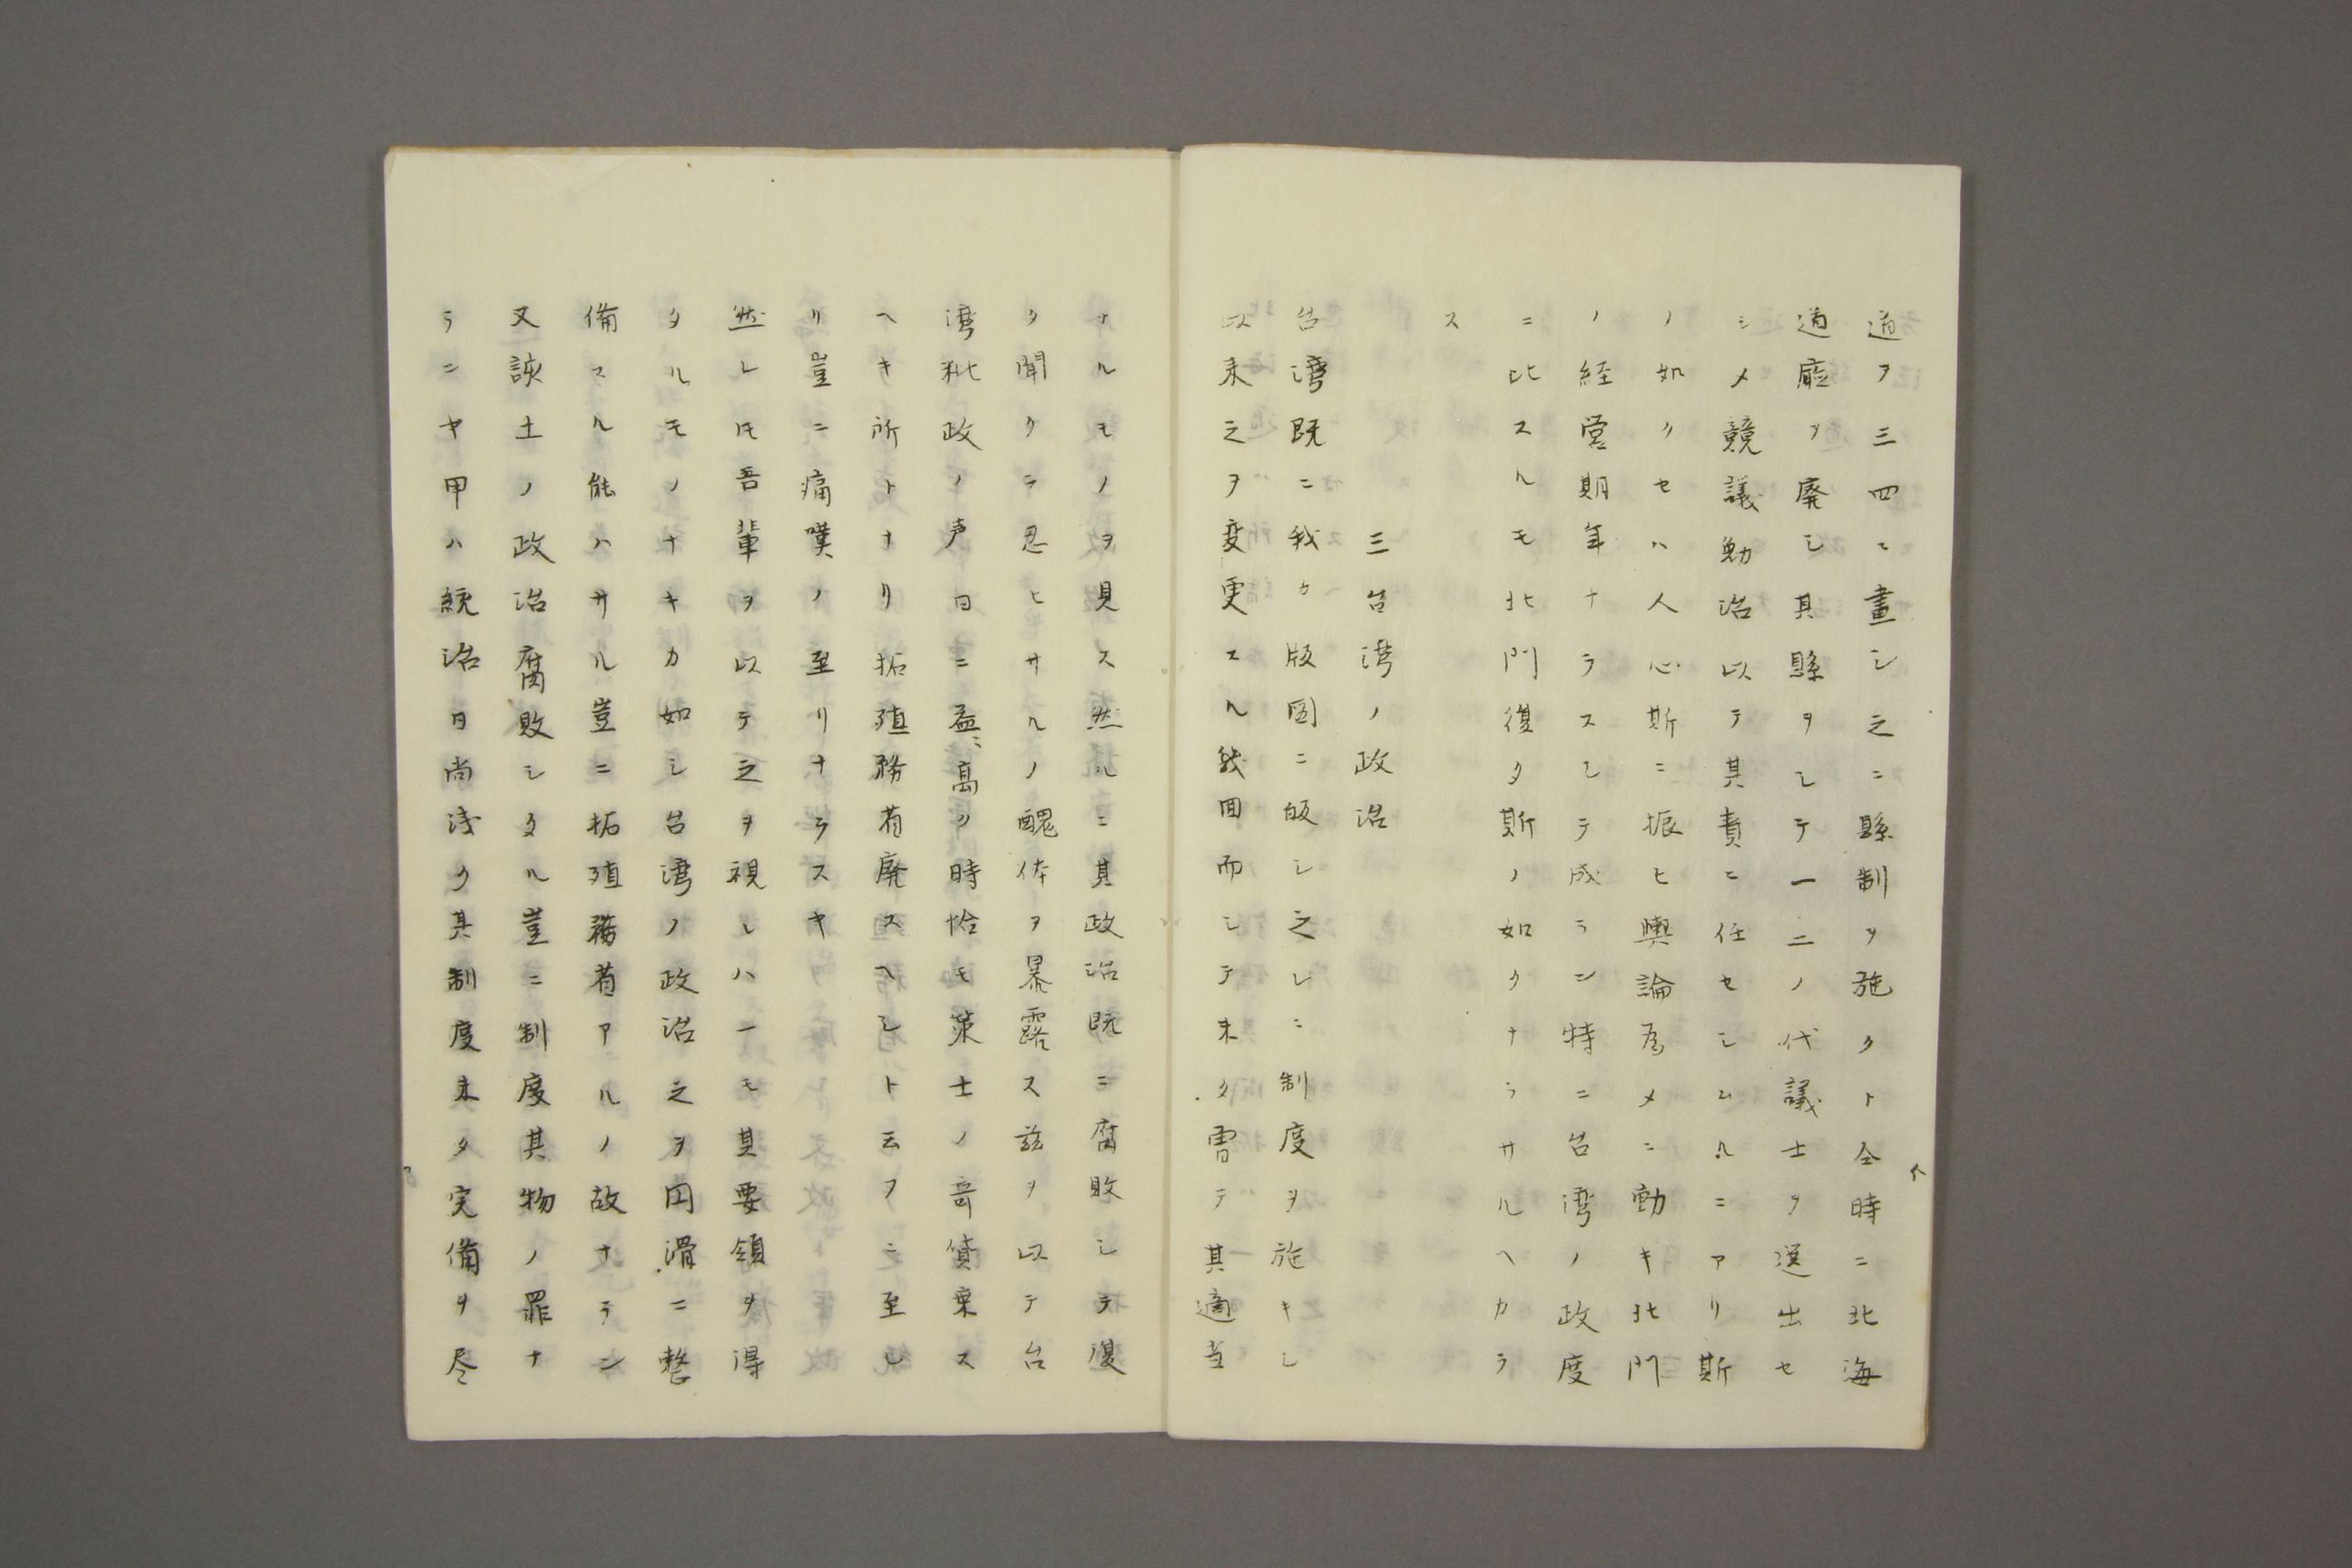 道ヲ三四ニ畫シ之ニ縣制ヲ施クト仝時ニ北海
道廳ヲ廃シ其縣ヲシテ一二ノ代議士ヲ選出セ
シメ競議勉治以テ其責ニ任セシムルニアリ斯
ノ如クセハ人心斯ニ振ヒ輿論為メニ動キ北門
ノ経営期年ナラスシテ成ラン特ニ台湾ノ政度
ニ比スルモ北門復タ斯ノ如クナラサルヘカラ
ス
三台湾ノ政治
台湾既ニ我カ版図ニ皈シ之レニ制度ヲ施キシ
以来之ヲ変更スル幾回而シテ未タ曽テ其適当
ナルモノヲ見ス然ルニ其政治既ニ腐敗シテ復
タ聞クニ忍ヒサルノ醜体ヲ暴露ス茲ヲ以テ台
湾秕政ノ声日ニ益〻高ク時恰モ策士ノ奇貨棄ス
ヘキ所トナリ拓殖務省廃スヘシト云フニ至レ
リ豈ニ痛嘆ノ至リナラスヤ
然レ𪜈吾輩ヲ以テ之ヲ視レハ一モ其要領ヲ得
タルモノナキカ如シ台湾ノ政治之ヲ円滑ニ整
備スル能ハサル豈ニ拓殖務省アルノ故ナラン
又該土ノ政治腐敗シタル豈ニ制度其物ノ罪ナ
ランヤ甲ハ統治日尚浅ク其制度未タ完備ヲ尽